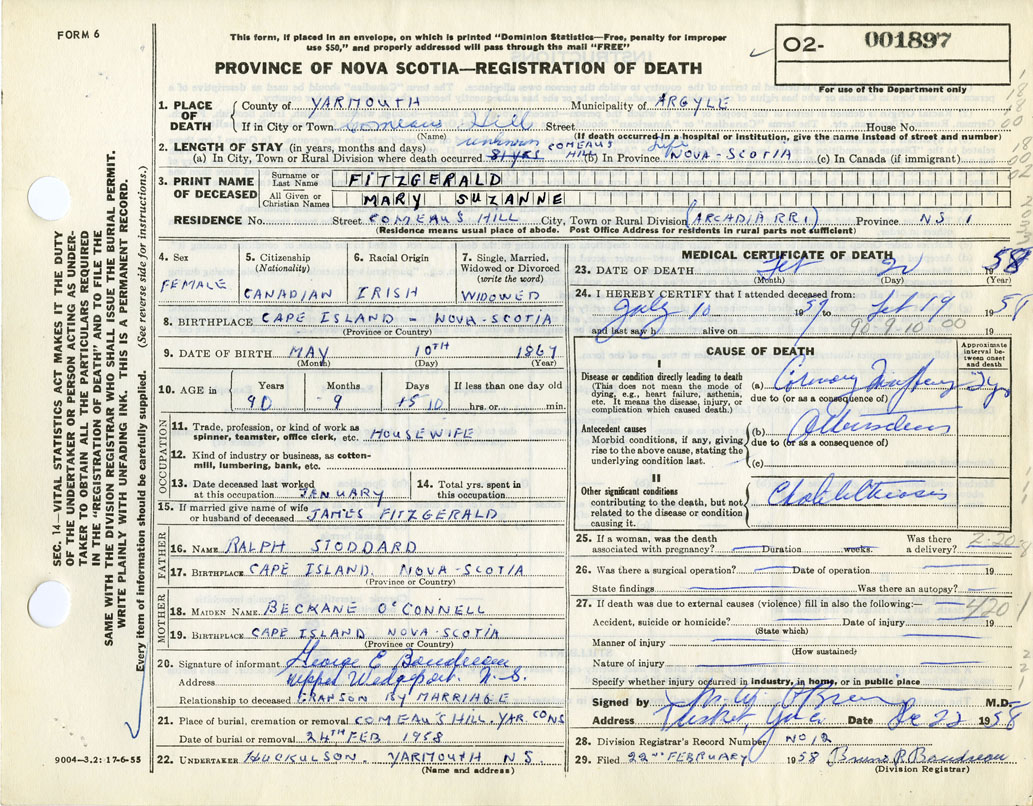 FORM 6
This form, if placed in an envelope, on which is printed "Dominion Statistics—Free, penalty for improper
use $50," and properly addressed will pass through the mail "FREE"
O2- 001897
For use of the Department only
PROVINCE OF NOVA SCOTIA—REGISTRATION OF DEATH
SEC. 14—VITAL STATISTICS ACT MAKES IT THE DUTY
OF THE UNDERTAKER OR PERSON ACTING AS UNDER-
TAKER TO OBTAIN ALL THE PARTICULARS REQUIRED
IN THE "REGISTRATION OF DEATH" AND TO FILE THE
SAME WITH THE DIVISION REGISTRAR WHO SHALL ISSUE THE BURIAL PERMIT.
WRITE PLAINLY WITH UNFADING INK. THIS IS A PERMANENT RECORD.
Every item of information should be carefully supplied. (See reverse side for instructions.)
1. PLACE OF DEATH
County of YARMOUTH Municipality of ARGYLE
If in City or Town Comeaus Hill Street House No.
(Name) (If death occurred in a hospital or institution, give the name instead of street and number)
2. LENGTH OF STAY (in years, months and days) unknown COMEAU'S Life
(a) In City, Town or Rural Division where death occurred 81 YRS HILL (b) In Province NOVA-SCOTIA (c) In Canada (if immigrant)
3. PRINT NAME OF DECEASED
Surname or Last Name FITZGERALD
All Given or Christian Names MARY SUZANNE
RESIDENCE No. Street COMEAU'S HILL City, Town or Rural Division (ARCADIA RR1) Province NS 1
(Residence means usual place of abode. Post Office Address for residents in rural parts not sufficient)
4. Sex
FEMALE
5. Citizenship
(Nationality)
CANADIAN
6. Racial Origin
IRISH
7. Single, Married,
Widowed or Divorced
(write the word)
WIDOWED
8. BIRTHPLACE CAPE ISLAND - NOVA-SCOTIA
(Province or Country)
9. DATE OF BIRTH MAY 10TH 1867
(Month) (Day) (Year)
10. AGE in
Years Months Days If less than one day old
90 9 10 hrs. or min.
OCCUPATION
11. Trade, profession, or kind of work as
spinner, teamster, office clerk, etc. HOUSEWIFE
12. Kind of industry or business, as cotton-
mill, lumbering, bank, etc.
13. Date deceased last worked
at this occupation JANUARY
14. Total yrs. spent in
this occupation
15. If married give name of wife
or husband of deceased JAMES FITZGERALD
FATHER
16. NAME RALPH STODDARD
17. BIRTHPLACE CAPE ISLAND. NOVA-SCOTIA
(Province or Country)
MOTHER
18. MAIDEN NAME BECKANE O'CONNELL
19. BIRTHPLACE CAPE ISLAND NOVA-SCOTIA
(Province or Country)
20. Signature of informant George E Boudreau
Address Upper Wedgeport. N.S.
Relationship to deceased GRANSON BY MARRIAGE
21. Place of burial, cremation or removal COMEAU'S HILL. YAR. CO NS
Date of burial or removal 24TH FEB 1958
22. UNDERTAKER HUCKULSON. YARMOUTH NS.
(Name and address)
9004—3.2: 17-6-55
MEDICAL CERTIFICATE OF DEATH
23. DATE OF DEATH Feb 20 1958
(Month) (Day) (Year)
24. I HEREBY CERTIFY that I attended deceased from:
July 10 1957 to Feb 19 1958
and last saw h alive on 90-9-10 00 19
CAUSE OF DEATH
Approximate
interval be-
tween onset
and death
I
Disease or condition directly leading to death
(This does not mean the mode of
dying, e.g., heart failure, asthenia,
etc. It means the disease, injury, or
complication which caused death.)
(a) Coronary
due to (or as a consequence of)
Antecedent causes
Morbid conditions, if any, giving
rise to the above cause, stating the
underlying condition last.
(b)
due to (or as a consequence of)
(c)
II
Other significant conditions
contributing to the death, but not
related to the disease or condition
causing it.
Cholilithiosis
25. If a woman, was the death
associated with pregnancy? Duration weeks. Was there
a delivery? 2-20
26. Was there a surgical operation? Date of operation 19
State findings Was there an autopsy?
27. If death was due to external causes (violence) fill in also the following:—
420
Accident, suicide or homicide? Date of injury 19
(State which)
Manner of injury
(How sustained)
Nature of injury
Specify whether injury occurred in industry, in home, or in public place
Signed by O'Brien M.D.
Address Tusket, Date 22 1958
28. Division Registrar's Record Number NO 12
29. Filed 22ND FEBRUARY 1958 Bruno P. Boudreau
(Division Registrar)